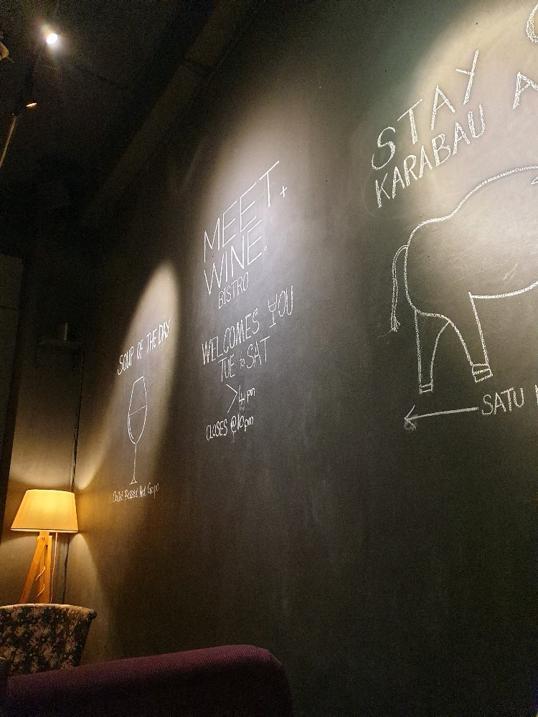 SOUP OF THE DAY
MEET+
WINE.
BISTRO
WELCOMES YOU
TUE to SAT
>4pm
CLOSES @10pm
STAY
KARABAU
SATU